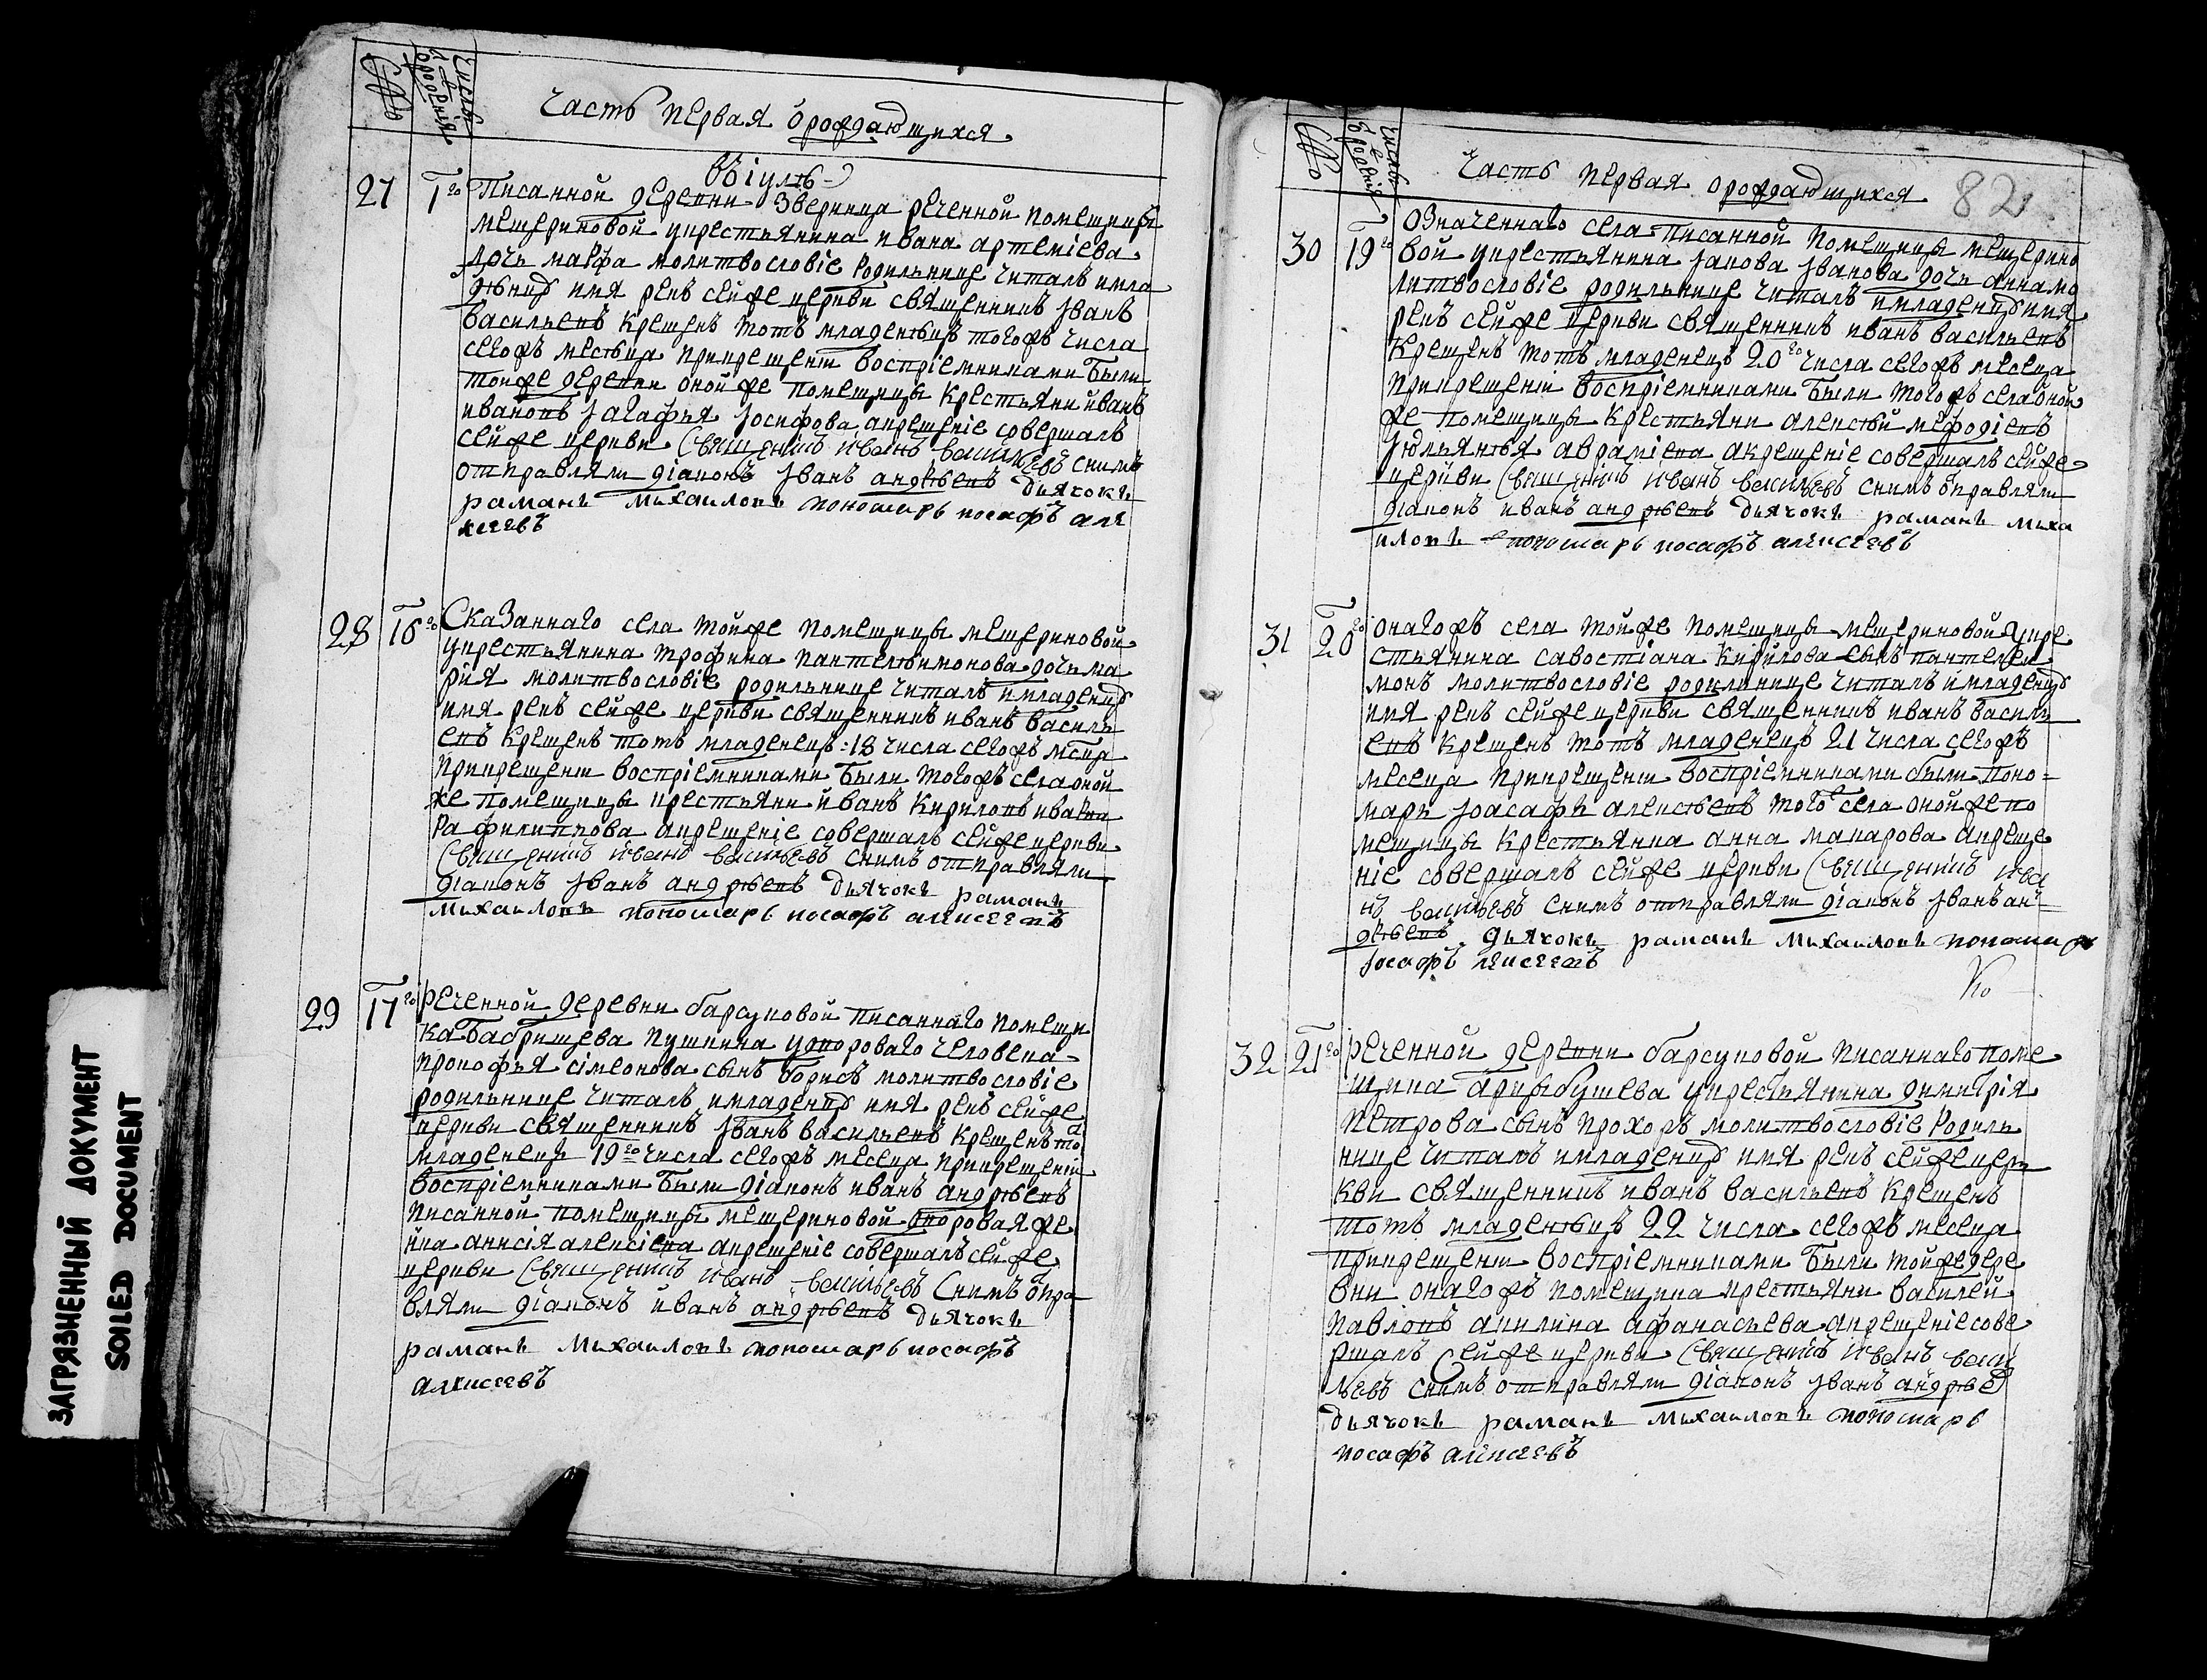 Число рожденія
Часть первая ѡ рождающихся
Въ іуль
27 1го Писанной деревни Зверинца реченной помещицы
мещериновой у крестьянина ивана артеміева
дочь марфа молитвословіе родильнице читалъ и мла
денцу имя рекъ сей же церкви священникъ Іванъ
васильевъ крещенъ тотъ младенецъ тогожъ числа
сегожъ месеца при крещеніи воспріемниками были
той же деревни оной же помещицы крестьяни иванъ
ивановъ Ј агафья Јосифова а крещеніе совершалъ
сей же церкви Священникъ Иванъ васильевъ с нимъ
отправляли діаконъ Јванъ андреевъ дьячокъ
раманъ михаиловъ пономарь иосафъ але
ксеевъ
28 16го Сказаннаго села той же помещицы мещериновой
у крестьянина трофима пантелеимонова дочь ма
рия молитвословіе родильнице читалъ и младенцу
имя рекъ сей же церкви священникъ иванъ василь
евъ крещенъ тотъ младенецъ 18 числа сегожъ мсца
при крещеніи воспріемниками были тогожъ села оной
же помещицы крестьяни иванъ кириловъ
ра филиппова а крещеніе совершалъ сей же церкви
Священникъ иванъ васильевъ с нимъ отправляли
діаконъ Јванъ андреевъ дьячокъ раманъ
михаиловъ пономарь иосафъ алексеевъ
29 17го Реченной деревни барсуковой писаннаго помещи
ка бабрищева пушкина у двороваго человека
прокофья сімеонова сынъ борисъ молитвословіе
родильнице читалъ и младенцу имя рекъ сей же
церкви священникъ Јванъ васильевъ крещенъ тотъ
младенецъ 19го числа сегожъ месеца при крещеніи
воспріемниками были діаконъ иванъ андреевъ
писанной помещицы мещериновой дворовая же
нка анисія алексіева а крещеніе совершалъ сей же
церкви Священникъ иванъ васильевъ с нимъ отпра
вляли діаконъ иванъ андреевъ дьячокъ
раманъ михаиловъ пономарь иосафъ
алексеевъ
Число рожденія
Часть первая ѡ рождающихся 82
30 19го Означеннаго села писанной помещицы мещерино
вой у крестьянина Јакова Јванова дочь анна мо
литвословіе родильнице читалъ и младенцу имя
рекъ сей же церкви священникъ иванъ васильевъ
крещенъ тотъ младенецъ 20го числа сегожъ месеца
при крещеніи воспріемниками были тогожъ села оной
же помещицы крестьяни алексѣй мефодіевъ
Ј ульянѣя авраміева а крещеніе совершалъ сей же
церкви Священникъ иванъ васильевъ с нимъ отправляли
діаконъ иванъ андреевъ дьячокъ раманъ миха
иловъ пономарь иосафъ алексеевъ
31 20го Онагожъ села той же помещицы мещериновой у кре
стьянина савостіана кирилова сынъ пантелеи
монъ молитвословіе родильнице читалъ и младенцу
имя рекъ сей же церкви священникъ иванъ василь
евъ крещенъ тотъ младенецъ 21 числа сегожъ
месеца при крещеніи воспріемниками были поно=
марь Јоасафъ алексѣевъ того села оной же по
мещицы крестьянка анна макарова а креще
ніе совершалъ сей же церкви Священникъ ива
нъ васильевъ с нимъ отправляли діаконъ Јванъ ан=
дреевъ дьячокъ раманъ михаиловъ пономарь
Јосафъ
Ко
32 21го Реченной деревни барсуковой писаннаго поме
щика у крестьянина димитрія
петрова сынъ прохоръ молитвословіе родиль
нице читалъ и младенцу имя рекъ сей же цер
кви священникъ иванъ васильевъ крещенъ
тотъ младенѣцъ 22 числа сегожъ месеца
при крещеніи воспріемниками были той же дере
вни онагожъ помещика крестьяни василей
павловъ акилина афанасьева а крещеніе сове
ршалъ сей же церкви Священникъ иванъ васи
льевъ с нимъ отправляли діаконъ Јванъ андреевъ
дьячокъ раманъ михаиловъ пономарь
иосафъ алексеевъ
ЗАГРЯЗНЕННЫЙ ДОКУМЕНТ
SOILED DOCUMENT